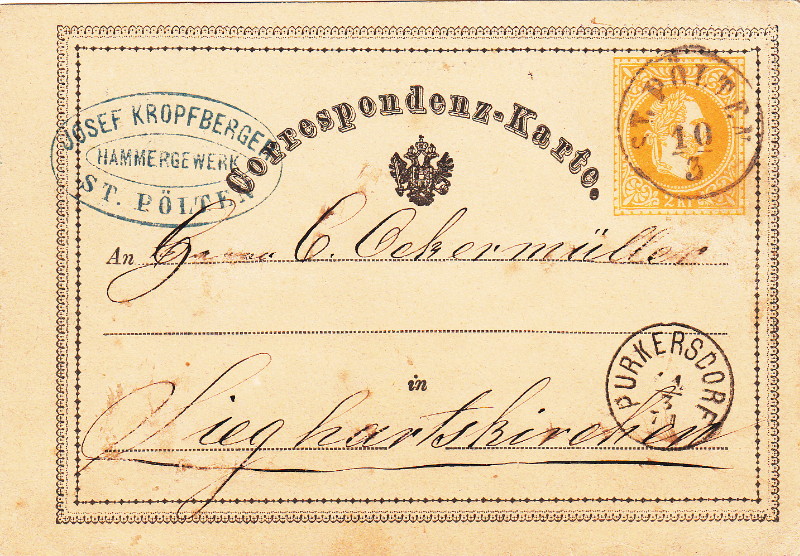 Correspondenz-Karte.
JOSEF KROPFBERGER
HAMMERGEWERK
ST. PÖLTEN
ST. PÖLTEN
10
3
An Herrn C. Ockermüller
in
Sieghartskirchen
PURKERSDORF
3
71